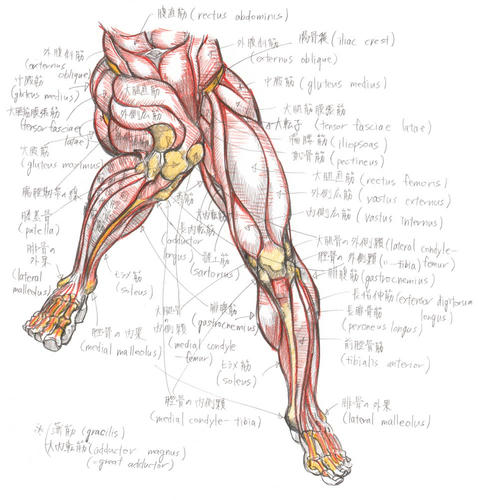 腹直筋 (rectus abdominus)
外腹斜筋
(externus
oblique)
中殿筋
(gluteus medius)
大腿筋膜張筋
(tensor fasciae
latae)
大殿筋
(gluteus maximus)
膝蓋骨
(patella)
腓骨の
外果
(lateral
malleolus)
大腿直筋
外側広筋
外腹斜筋
(externus oblique)
(iliac crest)
中殿筋 (gluteus medius)
大腿筋膜張筋
(tensor fasciae latae)
大転子
腸腰筋 (iliopsoas)
恥骨筋 (pectineus)
大腿直筋 (rectus femoris)
外側広筋 (vastus externus)
内側広筋 (vastus internus)
大腿骨の外側顆 (lateral condyle-
femur)
脛骨の外側顆 (〃-tibia)
腓腹筋 (gastrocnemius)
長指伸筋 (extensor digitorum
longus)
長腓骨筋
(peroneus longus)
前脛骨筋
(tibialis anterior)
腓骨の外果
(lateral malleolus)
大内転筋
長内転筋
(adductor
longus)
縫工筋
(sartorius)
ヒラメ筋
(soleus)
腓腹筋
(gastrocnemius)
大腿骨
の内側顆
(medial condyle
femur)
脛骨の内果
(medial malleolus)
ヒラメ筋
(soleus)
脛骨の内側顆
(medial condyle-tibia)
※ 薄筋 (gracilis)
大内転筋 (adductor magnus)
(=great adductor)